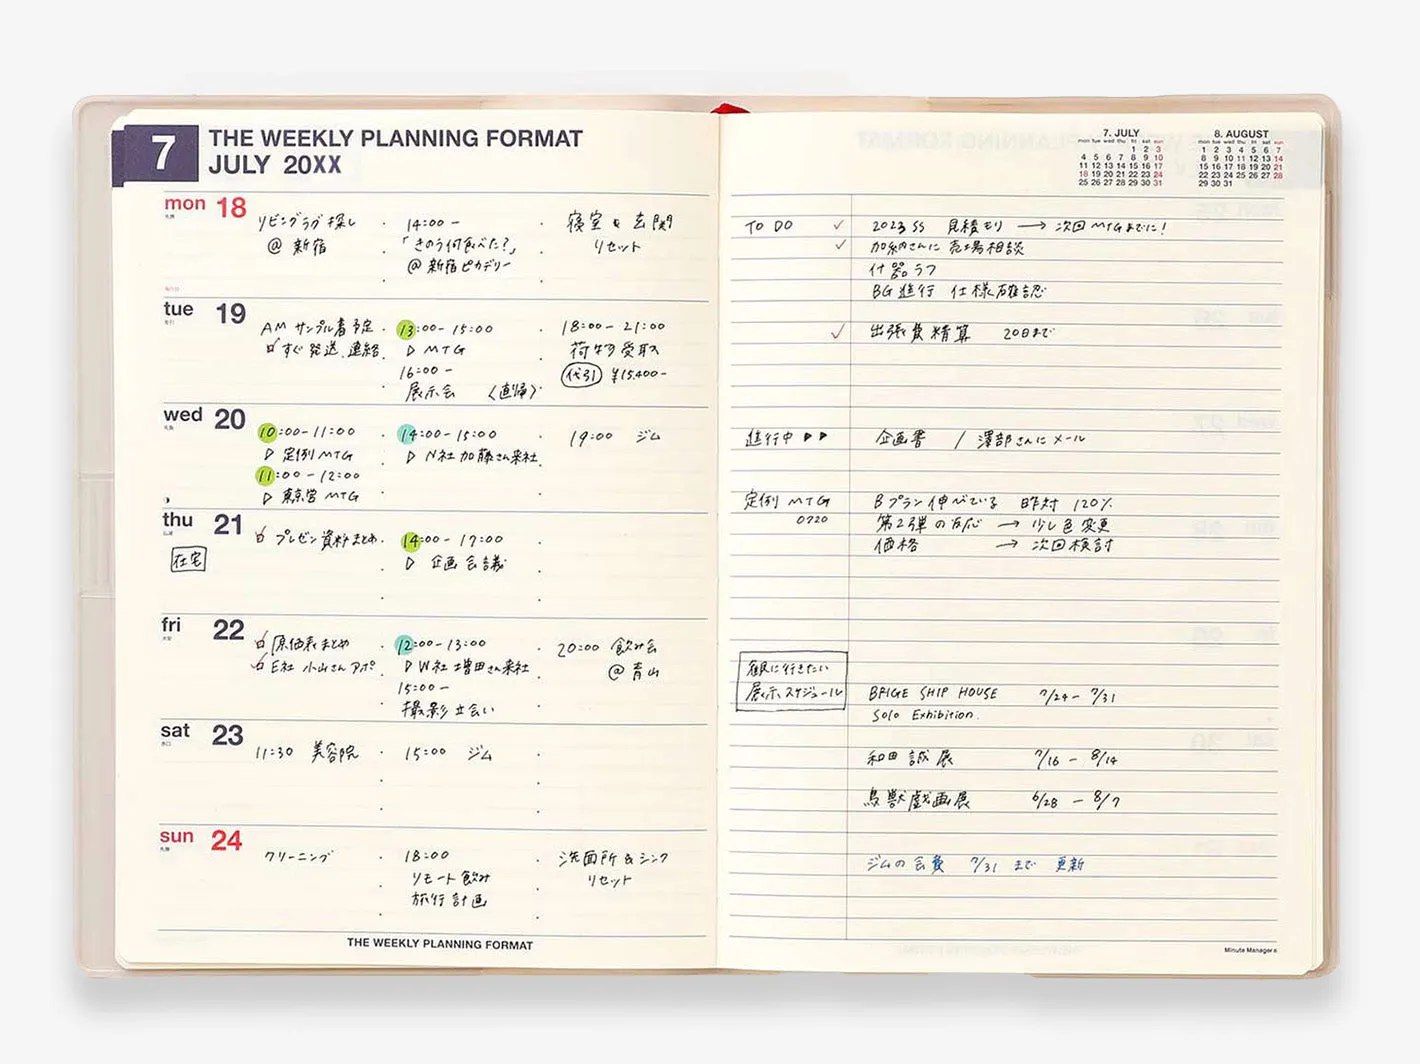 7
THE WEEKLY PLANNING FORMAT
JULY 20XX
mon 18
リビングラグ探し
@ 新宿
14:00 -
「きのう何食べた?」
@ 新宿ピカデリー
寝室 & 玄関
リセット
tue 19
AM サンプル着予定
すぐ発送、連絡
13:00- 15:00
▷ MTG
16:00 -
展示会 〈直帰〉
18:00 - 21:00
荷物受取
代引 ¥15,400-
wed 20
10:00-11:00
▷ 定例MTG
11:00 - 12:00
▷ 東京営 MTG
14:00- 15:00
▷ N社 加藤さん来社
19:00 ジム
thu 21
在宅
プレゼン資料まとめ
14:00 - 17:00
▷ 企画会議
fri 22
原価表まとめ
E社 小山さんアポ
12:00- 13:00
▷ W社 増田さん来社
15:00 -
撮影立会い
20:00 飲み会
@ 青山
sat 23
11:30 美容院
15:00 ジム
sun 24
クリーニング
18:00
リモート飲み
旅行計画
洗面所 & シンク
リセット
THE WEEKLY PLANNING FORMAT
7. JULY
mon tue wed thu fri sat sun
1 2 3
4 5 6 7 8 9 10
11 12 13 14 15 16 17
18 19 20 21 22 23 24
25 26 27 28 29 30 31
8. AUGUST
mon tue wed thu fri sat sun
1 2 3 4 5 6 7
8 9 10 11 12 13 14
15 16 17 18 19 20 21
22 23 24 25 26 27 28
29 30 31
TO DO ✓ 2023 SS 見積もり → 次回MTGまでに!
✓ 加納さんに売場相談
什器ラフ
BG進行 仕様確認
✓ 出張費精算 20日まで
進行中 ▶▶ 企画書 / 澤部さんにメール
定例 MTG Bプラン伸べている 昨対 120%
0720 第2弾の反応 → 少し色変更
価格 → 次回検討
観に行きたい
展示スケジュール BRIGE SHIP HOUSE 7/24 - 7/31
Solo Exhibition.
和田誠展 7/16 - 8/14
鳥獣戯画展 6/28 - 8/7
ジムの会費 7/31 まで 更新
Minute Manager®